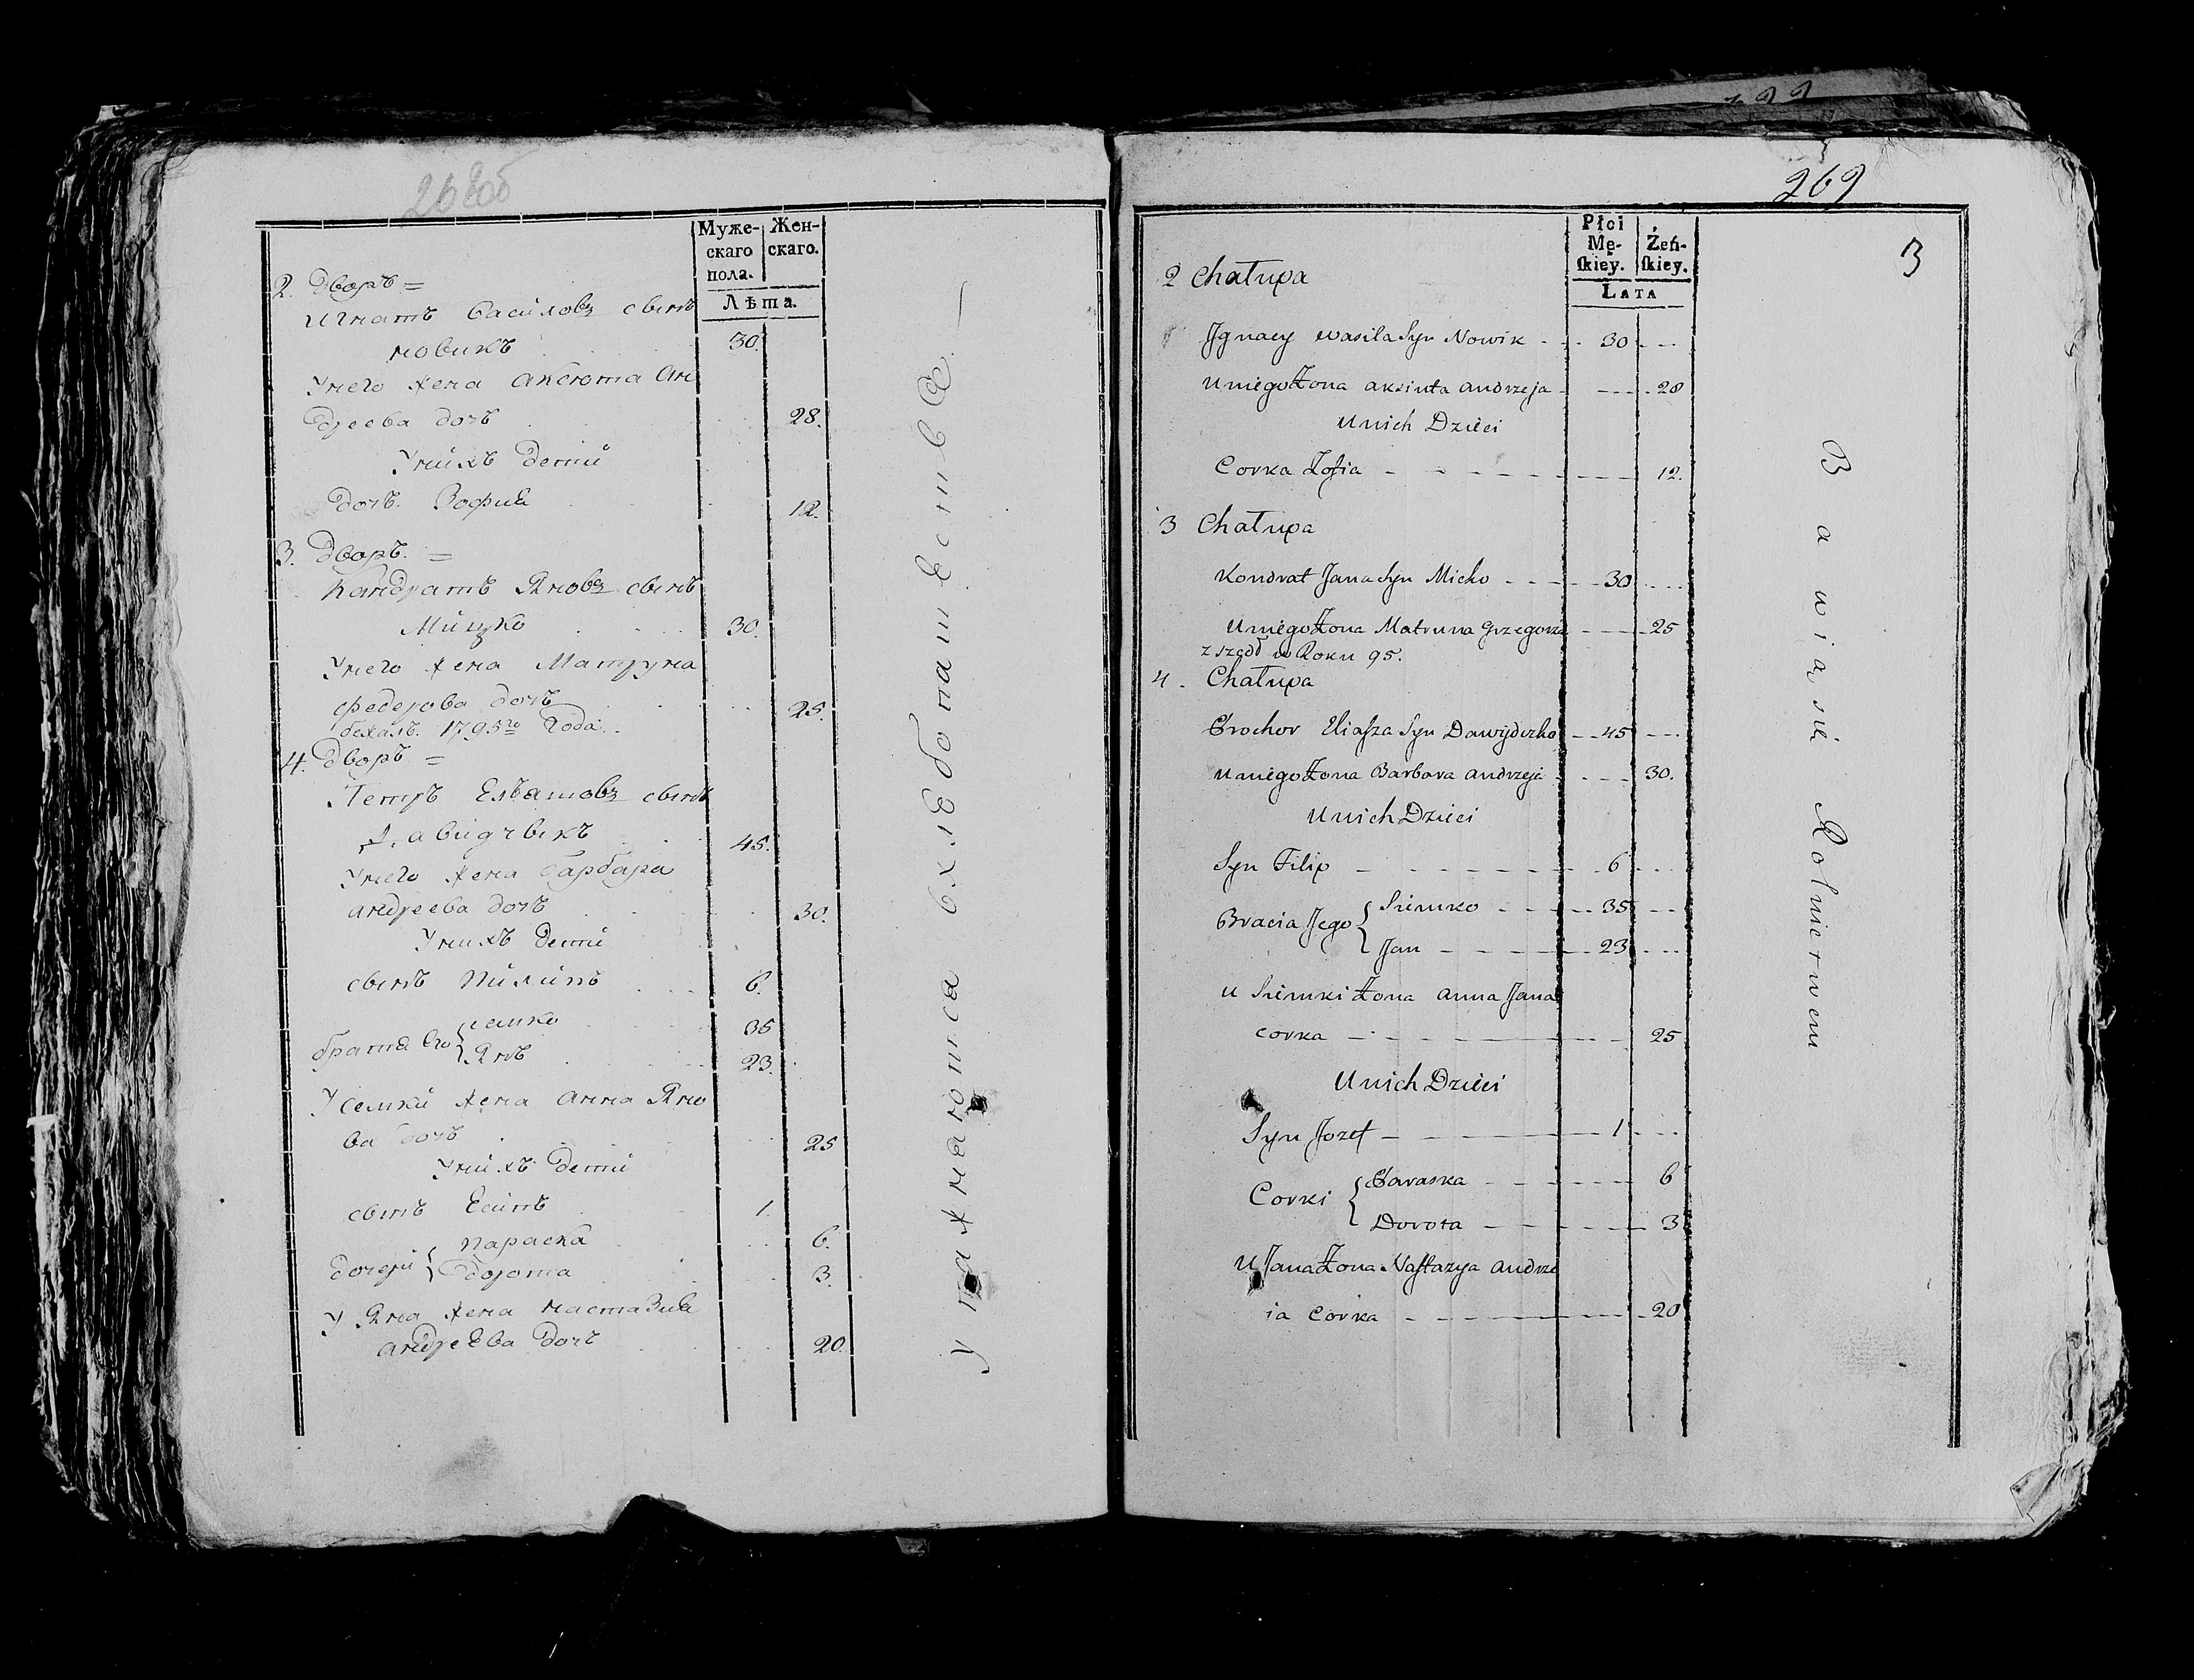 268об
Муже-
скаго
пола.
Жен-
скаго.
Лѣта.
2. Дворъ =
Игнатъ Василовъ сынъ
новикъ 30.
Унего жена Аксюта Ан
дреева дочъ 28.
Унихъ дети
дочъ Зофия 12.
3. Дворъ. =
Кандратъ Яновъ сынъ
Мицко 30.
Унего жена Матруна
федерова дочъ 25.
бежалъ. 1795го Года.
4. Дворъ =
Петръ Ельяшовъ сынъ
Давидчыкъ 45.
Унего жена барбара
андреева дочъ 30.
Унихъ дети
сынъ Пилипъ 6.
братя его { семко 35
Янъ 23.
У семки жена анна Яно
ва дочъ 25
Унихъ дети
сынъ Есипъ 1.
дочери { параска 6.
дорота 3.
У Яна жена настазия
андреева дочъ 20.
упажнаются вхлебопашестве. —
269
3
Płci
Mę-
ſkiey.
Żeń-
ſkiey.
Lata
2 Chałupa
Jgnacy wasila Syn Nowik - - 30 - - -
u niego Żona aksiuta andrzeja - - - - 28
U nich Dzieci
Corka Zofia - - - - - - - 12.
3 Chałupa
Kondrat Jana Syn Micko - - - - 30 - - -
U niego Żona Matruna Grzegorza - - - - 25
zszedł w Roku 95.
4. Chałupa
Prochor Eliaſza Syn Dawydczko - - 45 - - -
U niego Żona Barbara andrzeja - - - - 30.
U nich Dzieci
Syn Filip - - - - - - - 6 - - -
Bracia Jego { Siemko - - - - - 35 - - -
Jan - - - - - 23 - - -
u Siemki Żona anna Jana
corka - - - - - - 25
U nich Dzieci
Syn Jozef - - - - - - 1 - - -
Corki { Paraska - - - - - - 6
Dorota - - - - - - 3
U Jana Żona Naſtazya andrze
ia Corka - - - - - - 20
Bawią się Rolnictwem